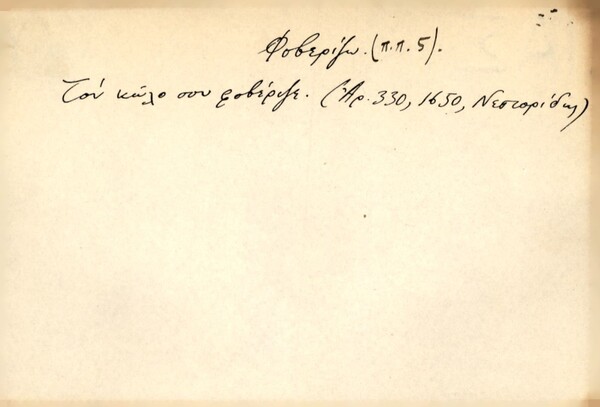 Φοβερίζω. (π.π. 5).
Τον κώλο σου φοβέριζε. (Ἀρ. 330, 1650, Νεστορίδης)